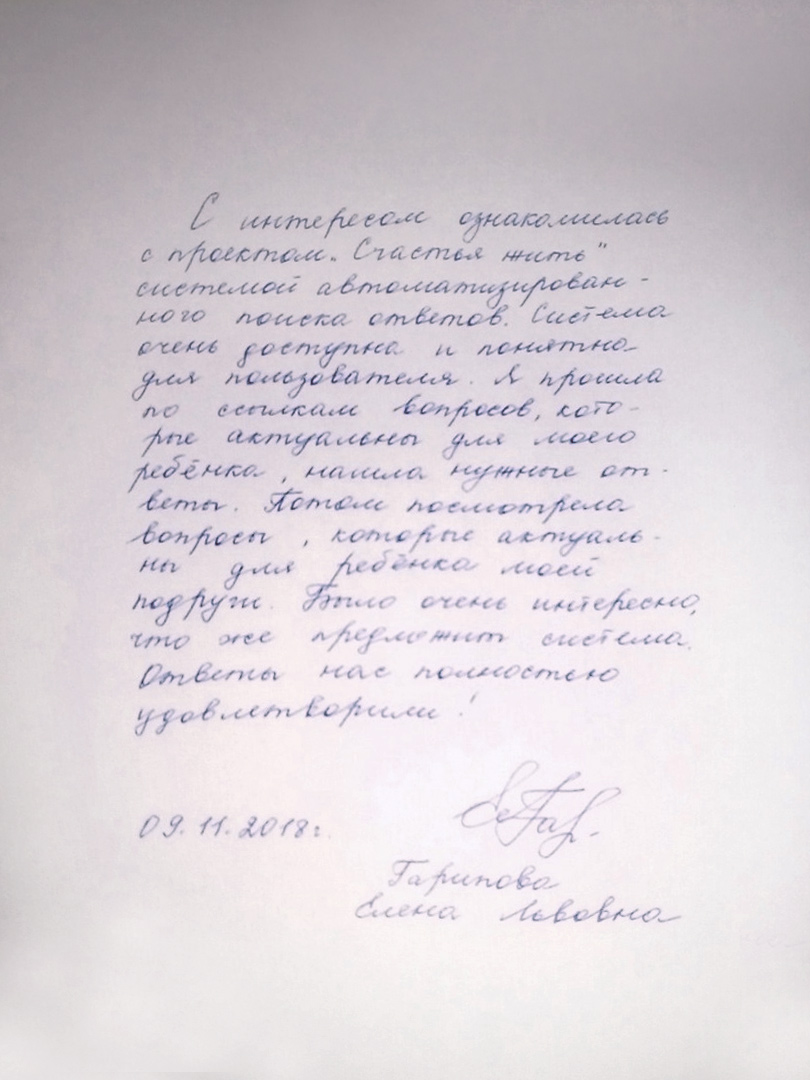 С интересом ознакомилась
с проектом „Счастья жить"
системой автоматизирован-
ного поиска ответов. Система
очень доступна и понятна
для пользователя. Я прошла
по ссылкам вопросов, кото-
рые актуальны для моего
ребёнка, нашла нужные от-
веты. Потом посмотрела
вопросы, которые актуаль-
ны для ребёнка моей
подруги. Было очень интересно,
что же предложит система.
Ответы нас полностью
удовлетворили!
09.11.2018г.
Гарипова
Елена Львовна